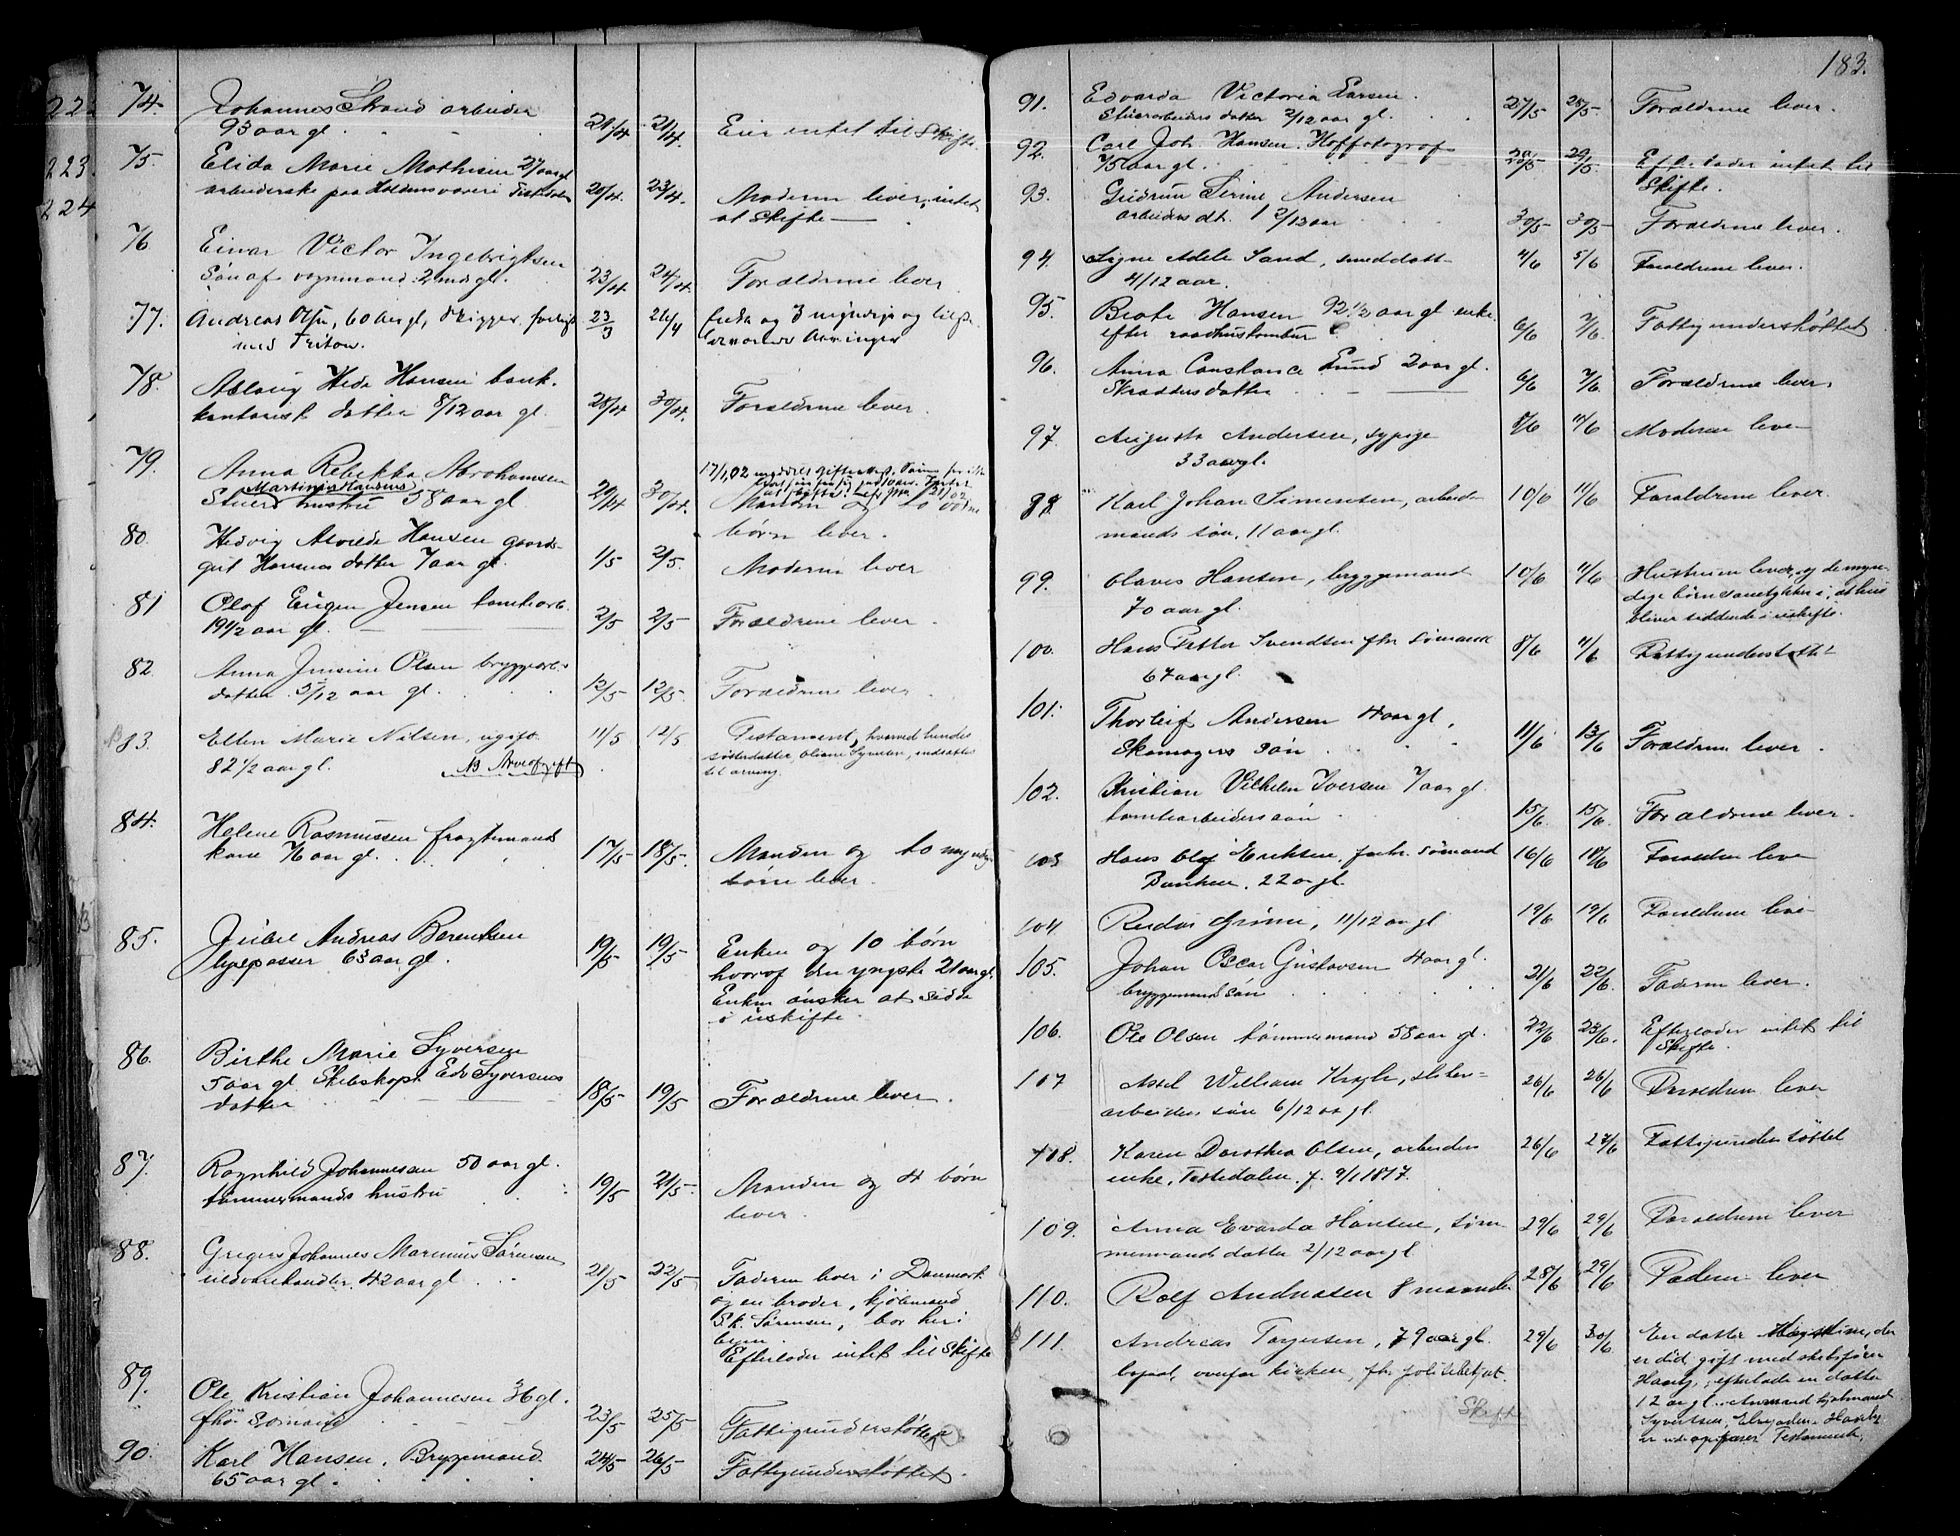 22
223
224
74. Johannes Strand arbeider
93 aar gl. 21/4 21/4. Eier intet til Skifte.
75. Elida Marie Mathisen 27 aar gl
arbeiderske paa Haldensvæveri Tistedalen 20/4. 23/4. Moderen lever, intet
at Skifte —
76 Einar Victor Ingebrigtsen
Søn af vognmand 2 mdr gl. 23/4 24/4. Forældrene lever
77. Andreas Olsen, 60 aar gl, Skipper, forligt 23/3 26/4 Enke og 3 myndige og
med Triton. Arvinger
78. Aslaug Heda Hansen bank-
kontorist datter 8/12 aar gl. 28/4 30/4. Forældrene lever.
79. Anna Rebekka Abrahamsen
Martinis Hansens
Stuers hustru 58 aar gl. 29/4 30/4. Manden og to voksne
børn lever.
80. Hedvig Alvilde Hansen gaards-
gut Hansens datter 7 aar gl. 1/5 2/5. Moderen lever
81 Olaf Eugen Jensen tomtearb.
19 1/2 aar gl. — 2/5 2/5. Forældrene lever.
82. Anna Jensine Olsen bryggearb.
datter 3/12 aar gl. 12/5 12/5 Forældrene lever.
83. Ellen Marie Nilsen, ugift 11/5 12/5 Testament, hvorved hendes
82 1/2 aar gl. NB Arveafgift søsterdatter, Oliane Syman, indsættes
til arving.
84. Helene Rasmussen fragtemands
kone 76 aar gl. 17/5 18/5. Manden og to myndige
børn lever.
85. Julie Andreas Berentsen
lygepasser 63 aar gl. 19/5 19/5. Enken og 10 børn
hvoraf den yngste 21 aar gl.
Enken ønsker at sidde
i uskifte.
86. Birthe Marie Syversen
5 aar gl. Skibskapt Edv Syversens
datter 18/5 19/5 Forældrene lever.
87. Ragnhild Johannesen 50 aar gl.
tømmermands hustru 19/5 21/5. Manden og 4 børn
lever.
88. Gregers Johannes Marinius Sørensen
uldvarehandler 42 aar gl. 21/5 22/5. Faderen lever i Danmark
og en broder, kjøbmand
S.k. Sørensen, bor her i
byen.
Efterlader intet til Skifte
89. Ole Kristian Johannesen 36 gl.
fhv. Sømand 23/5 25/5 Fattigunderstøttet
90. Karl Hansen, Bryggemand
65 aar gl. 24/5 26/5 Fattigunderstøttet.
183.
91. Edvarda Victoria Larsen.
Stuerarbeiders datter 2/12 aar gl. 27/5 28/5. Forældrene lever.
92. Carl Joh Hansen. Hoffotograf
75 aar gl. 29/5 Efterlader intet til
Skifte.
93. Gudrun Sirine Andersen
arbeiders dt. 1 2/12 aar 30/5 30/5 Forældrene lever.
94. Signe Adele Sand, smeddatt 4/6 5/6 Forældrene lever.
4/12 aar.
95. Beate Hansen 92 1/2 aar gl enke
efter raadhustambur 6/6 7/6. Fattigunderstøttet
96. Anna Constance Lund 2 aar gl.
Skrædders datter 6/6 7/6. Forældrene lever.
97. Augusta Andersen, sypige 8/6 11/6 Moderen lever
33 aar gl.
98 Karl Johan Simensen, arbeid- 10/6 11/6 Forældrene lever.
mands søn, 11 aar gl.
99. Olaves Hansen, bryggemand 10/6 11/6 Hustruen lever, og de myn-
70 aar gl. dige børn samtykker i, at hun
bliver siddende i uskifte.
100. Hans Petter Svendsen fhv sømand 8/6 11/6 Fattigunderstøttet
67 aar gl.
101. Thorleif Andersen 4 aar gl.
Skomagers søn 11/6 13/6 Forældrene lever.
102. Kristian Vilhelm Iversen 7 aar gl.
tomtearbeiders søn 15/6. 15/6. Forældrene lever.
103 Hans Olaf Eriksen, forh. sømand 16/6 18/6 Forælden lever
22 a gl.
104 Reidar Grimi, 11/12 aar gl 19/6 19/6 Forældrene lever
105. Johan Oscar Gustavsen 4 aar gl.
bryggemands søn 21/6 22/6. Faderen lever.
106. Ole Olsen tømmermand 58 aar gl. 22/6 23/6. Efterlader intet til
Skifte.
107 Axel William Krogh, sliber- 26/6 26/6 Forældrene lever
arbeiders søn 6/12 aar gl.
108. Karen Dorothea Olsen, arbeiders 26/6 27/6 Fattigunderstøttet
enke, Tistedalen. f. 9/1 1817.
109. Anna Evarda Hansen, tøm 29/6 29/6 Forældrene lever
mermands datter 2/12 aar gl.
110. Rolf Andreasen 8 maaneder 28/6 29/6 Faderen lever
111. Andreas Torgersen, 79 aar gl. 29/6 30/6 En datter, der
overfor kirken, fhv politibetjent. er død, gift med skibsfører
Haaby, efterlod en datter
12 aar gl.
Skifte
Testament.